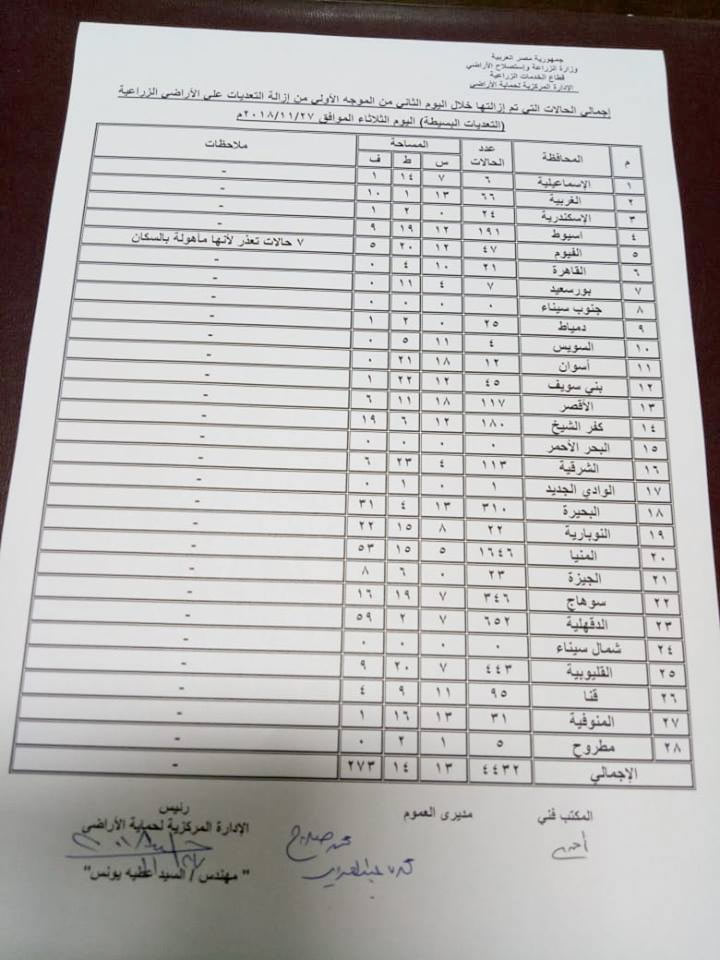 جمهورية مصر العربية
وزارة الزراعة وإستصلاح الأراضي
قطاع الخدمات الزراعية
الإدارة المركزية لحماية الأراضي
إجمالي الحالات التي تم إزالتها خلال اليوم الثاني من الموجه الأولي من إزالة التعديات علي الأراضي الزراعية
(التعديات البسيطة) اليوم الثلاثاء الموافق ٢٠١٨/١١/٢٧م
م المحافظة عدد الحالات المساحة ملاحظات
س ط ف
١ الإسماعيلية ٦ ٧ ١٤ ١ -
٢ الغربية ٦٦ ١٣ ١ ١٠ -
٣ الإسكندرية ٢٤ ٠ ٢ ١ -
٤ اسيوط ١٩١ ١٢ ١٩ ٩ -
٥ الفيوم ٤٧ ١٢ ٢٠ ٥ ٧ حالات تعذر لأنها مأهولة بالسكان
٦ القاهرة ٢١ ١٠ ٤ ٠ -
٧ بورسعيد ٧ ٤ ١١ ٠ -
٨ جنوب سيناء ٠ ٠ ٠ ٠ -
٩ دمياط ٢٥ ٠ ٢ ١ -
١٠ السويس ٤ ١١ ٥ ٠ -
١١ أسوان ١٢ ١٨ ٢١ ٠ -
١٢ بني سويف ٤٥ ١٢ ٢٢ ١ -
١٣ الأقصر ١١٧ ١٨ ١١ ٦ -
١٤ كفر الشيخ ١٨٠ ١٢ ٦ ١٩ -
١٥ البحر الأحمر ٠ ٠ ٠ ٠ -
١٦ الشرقية ١١٣ ٤ ٢٣ ٦ -
١٧ الوادي الجديد ١ ٠ ١ ٠ -
١٨ البحيرة ٣١٠ ١٣ ٤ ٣١ -
١٩ النوبارية ٢٢ ٨ ١٥ ٢٢ -
٢٠ المنيا ١٦٤٦ ٥ ١٥ ٥٣ -
٢١ الجيزة ٢٣ ٠ ٦ ٨ -
٢٢ سوهاج ٣٤٦ ٧ ١٩ ١٦ -
٢٣ الدقهلية ٦٥٢ ٧ ٢ ٥٩ -
٢٤ شمال سيناء ٠ ٠ ٠ ٠ -
٢٥ القليوبية ٤٤٣ ٧ ٢٠ ٩ -
٢٦ قنا ٩٥ ١١ ٩ ٤ -
٢٧ المنوفية ٣١ ١٣ ١٦ ١ -
٢٨ مطروح ٥ ١ ٢ ٠ -
الإجمالي ٤٤٣٢ ١٣ ١٤ ٢٧٣ -
المكتب فني مديرى العموم رئيس
الإدارة المركزية لحماية الأراضي
" مهندس / السيد عطيه يونس"